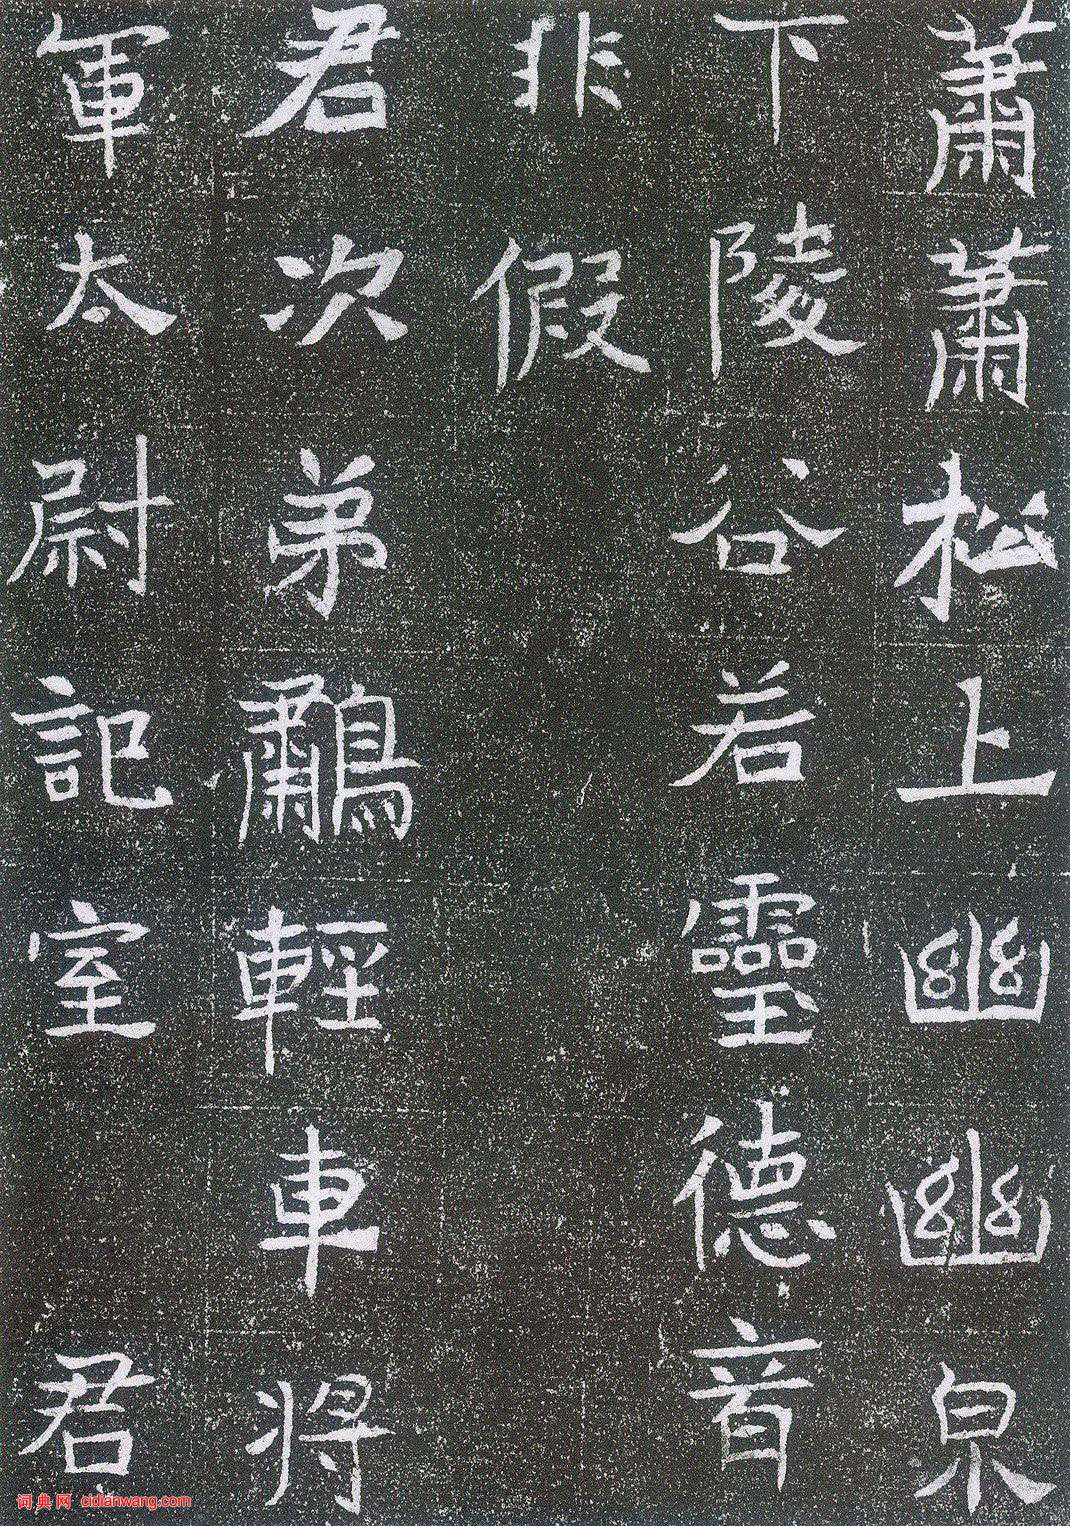 蕭蕭松上幽幽泉
下陵谷若靈德音
非假
君次弟鷫輕車將
軍太尉記室君
词典网 cidianwang.com